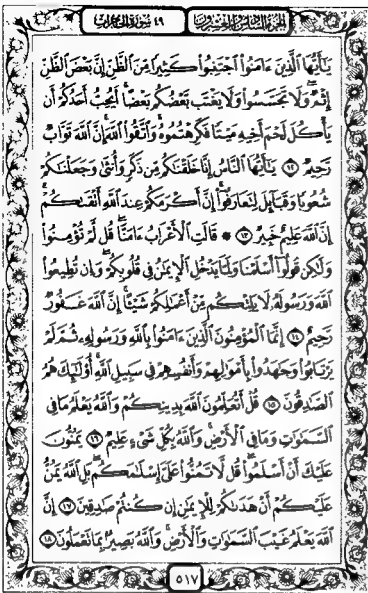 الجزء السادس والعشرون ٤٩ سورة الحجرات
يَٰٓأَيُّهَا ٱلَّذِينَ ءَامَنُوا۟ ٱجْتَنِبُوا۟ كَثِيرًا مِّنَ ٱلظَّنِّ إِنَّ بَعْضَ ٱلظَّنِّ
إِثْمٌ ۖ وَلَا تَجَسَّسُوا۟ وَلَا يَغْتَب بَّعْضُكُم بَعْضًا ۚ أَيُحِبُّ أَحَدُكُمْ أَن
يَأْكُلَ لَحْمَ أَخِيهِ مَيْتًا فَكَرِهْتُمُوهُ ۚ وَٱتَّقُوا۟ ٱللَّهَ ۚ إِنَّ ٱللَّهَ تَوَّابٌ
رَّحِيمٌ ١٢ يَٰٓأَيُّهَا ٱلنَّاسُ إِنَّا خَلَقْنَٰكُم مِّن ذَكَرٍ وَأُنثَىٰ وَجَعَلْنَٰكُمْ
شُعُوبًا وَقَبَآئِلَ لِتَعَارَفُوٓا۟ ۚ إِنَّ أَكْرَمَكُمْ عِندَ ٱللَّهِ أَتْقَىٰكُمْ ۚ
إِنَّ ٱللَّهَ عَلِيمٌ خَبِيرٌ ١٣ ۞ قَالَتِ ٱلْأَعْرَابُ ءَامَنَّا ۖ قُل لَّمْ تُؤْمِنُوا۟
وَلَٰكِن قُولُوٓا۟ أَسْلَمْنَا وَلَمَّا يَدْخُلِ ٱلْإِيمَٰنُ فِى قُلُوبِكُمْ ۖ وَإِن تُطِيعُوا۟
ٱللَّهَ وَرَسُولَهُۥ لَا يَلِتْكُم مِّنْ أَعْمَٰلِكُمْ شَيْـًٔا ۚ إِنَّ ٱللَّهَ غَفُورٌ
رَّحِيمٌ ١٤ إِنَّمَا ٱلْمُؤْمِنُونَ ٱلَّذِينَ ءَامَنُوا۟ بِٱللَّهِ وَرَسُولِهِۦ ثُمَّ لَمْ
يَرْتَابُوا۟ وَجَٰهَدُوا۟ بِأَمْوَٰلِهِمْ وَأَنفُسِهِمْ فِى سَبِيلِ ٱللَّهِ ۚ أُو۟لَٰٓئِكَ هُمُ
ٱلصَّٰدِقُونَ ١٥ قُلْ أَتُعَلِّمُونَ ٱللَّهَ بِدِينِكُمْ وَٱللَّهُ يَعْلَمُ مَا فِى
ٱلسَّمَٰوَٰتِ وَمَا فِى ٱلْأَرْضِ ۚ وَٱللَّهُ بِكُلِّ شَىْءٍ عَلِيمٌ ١٦ يَمُنُّونَ
عَلَيْكَ أَنْ أَسْلَمُوا۟ ۖ قُل لَّا تَمُنُّوا۟ عَلَىَّ إِسْلَٰمَكُم ۖ بَلِ ٱللَّهُ يَمُنُّ
عَلَيْكُمْ أَنْ هَدَىٰكُمْ لِلْإِيمَٰنِ إِن كُنتُمْ صَٰدِقِينَ ١٧ إِنَّ
ٱللَّهَ يَعْلَمُ غَيْبَ ٱلسَّمَٰوَٰتِ وَٱلْأَرْضِ ۚ وَٱللَّهُ بَصِيرٌۢ بِمَا تَعْمَلُونَ ١٨
٥١٧